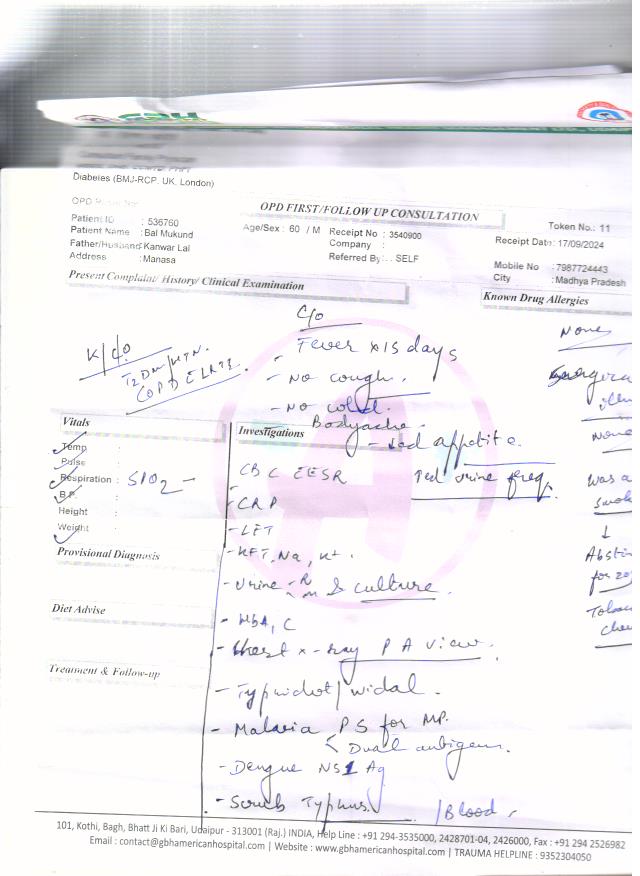 GBH
Diabetes (BMJ-RCP. UK. London)
OPD
OPD FIRST/FOLLOW UP CONSULTATION
Token No.: 11
Patient ID : 536760
Age/Sex : 60 / M
Receipt No : 3540900
Receipt Date: 17/09/2024
Patient Name : Bal Mukund
Company :
Father/Husband Kanwar Lal
Referred By: . SELF
Mobile No : 7987724443
Address : Manasa
City : Madhya Pradesh
Present Complaint/ History/ Clinical Examination
Known Drug Allergies
C/o
None
K/C/o
T2DM/HTN.
COPD
Fever x 15 days
- No cough.
- No cold.
Bodyache.
None
Vitals
Investigations
appetite.
Temp :
Pulse :
Respiration : SPO2 -
B.P. :
Height :
Weight :
CBC ESR
urine freq.
was a
- CRP
- LFT
Provisional Diagnosis
- KFT, Na, K+.
- Urine - R/m & culture.
for 20
Diet Advise
- HbA1C
- Chest x-ray PA view.
Treatment & Follow-up
- Typhidot/widal.
- Malaria PS for MP.
Dual antigen.
- Dengue NS1 Ag
- Scrub Typhus. /Blood
101, Kothi, Bagh, Bhatt Ji Ki Bari, Udaipur - 313001 (Raj.) INDIA, Help Line : +91 294-3535000, 2428701-04, 2426000, Fax : +91 294 2526982
Email : contact@gbhamericanhospital.com | Website : www.gbhamericanhospital.com | TRAUMA HELPLINE : 9352304050